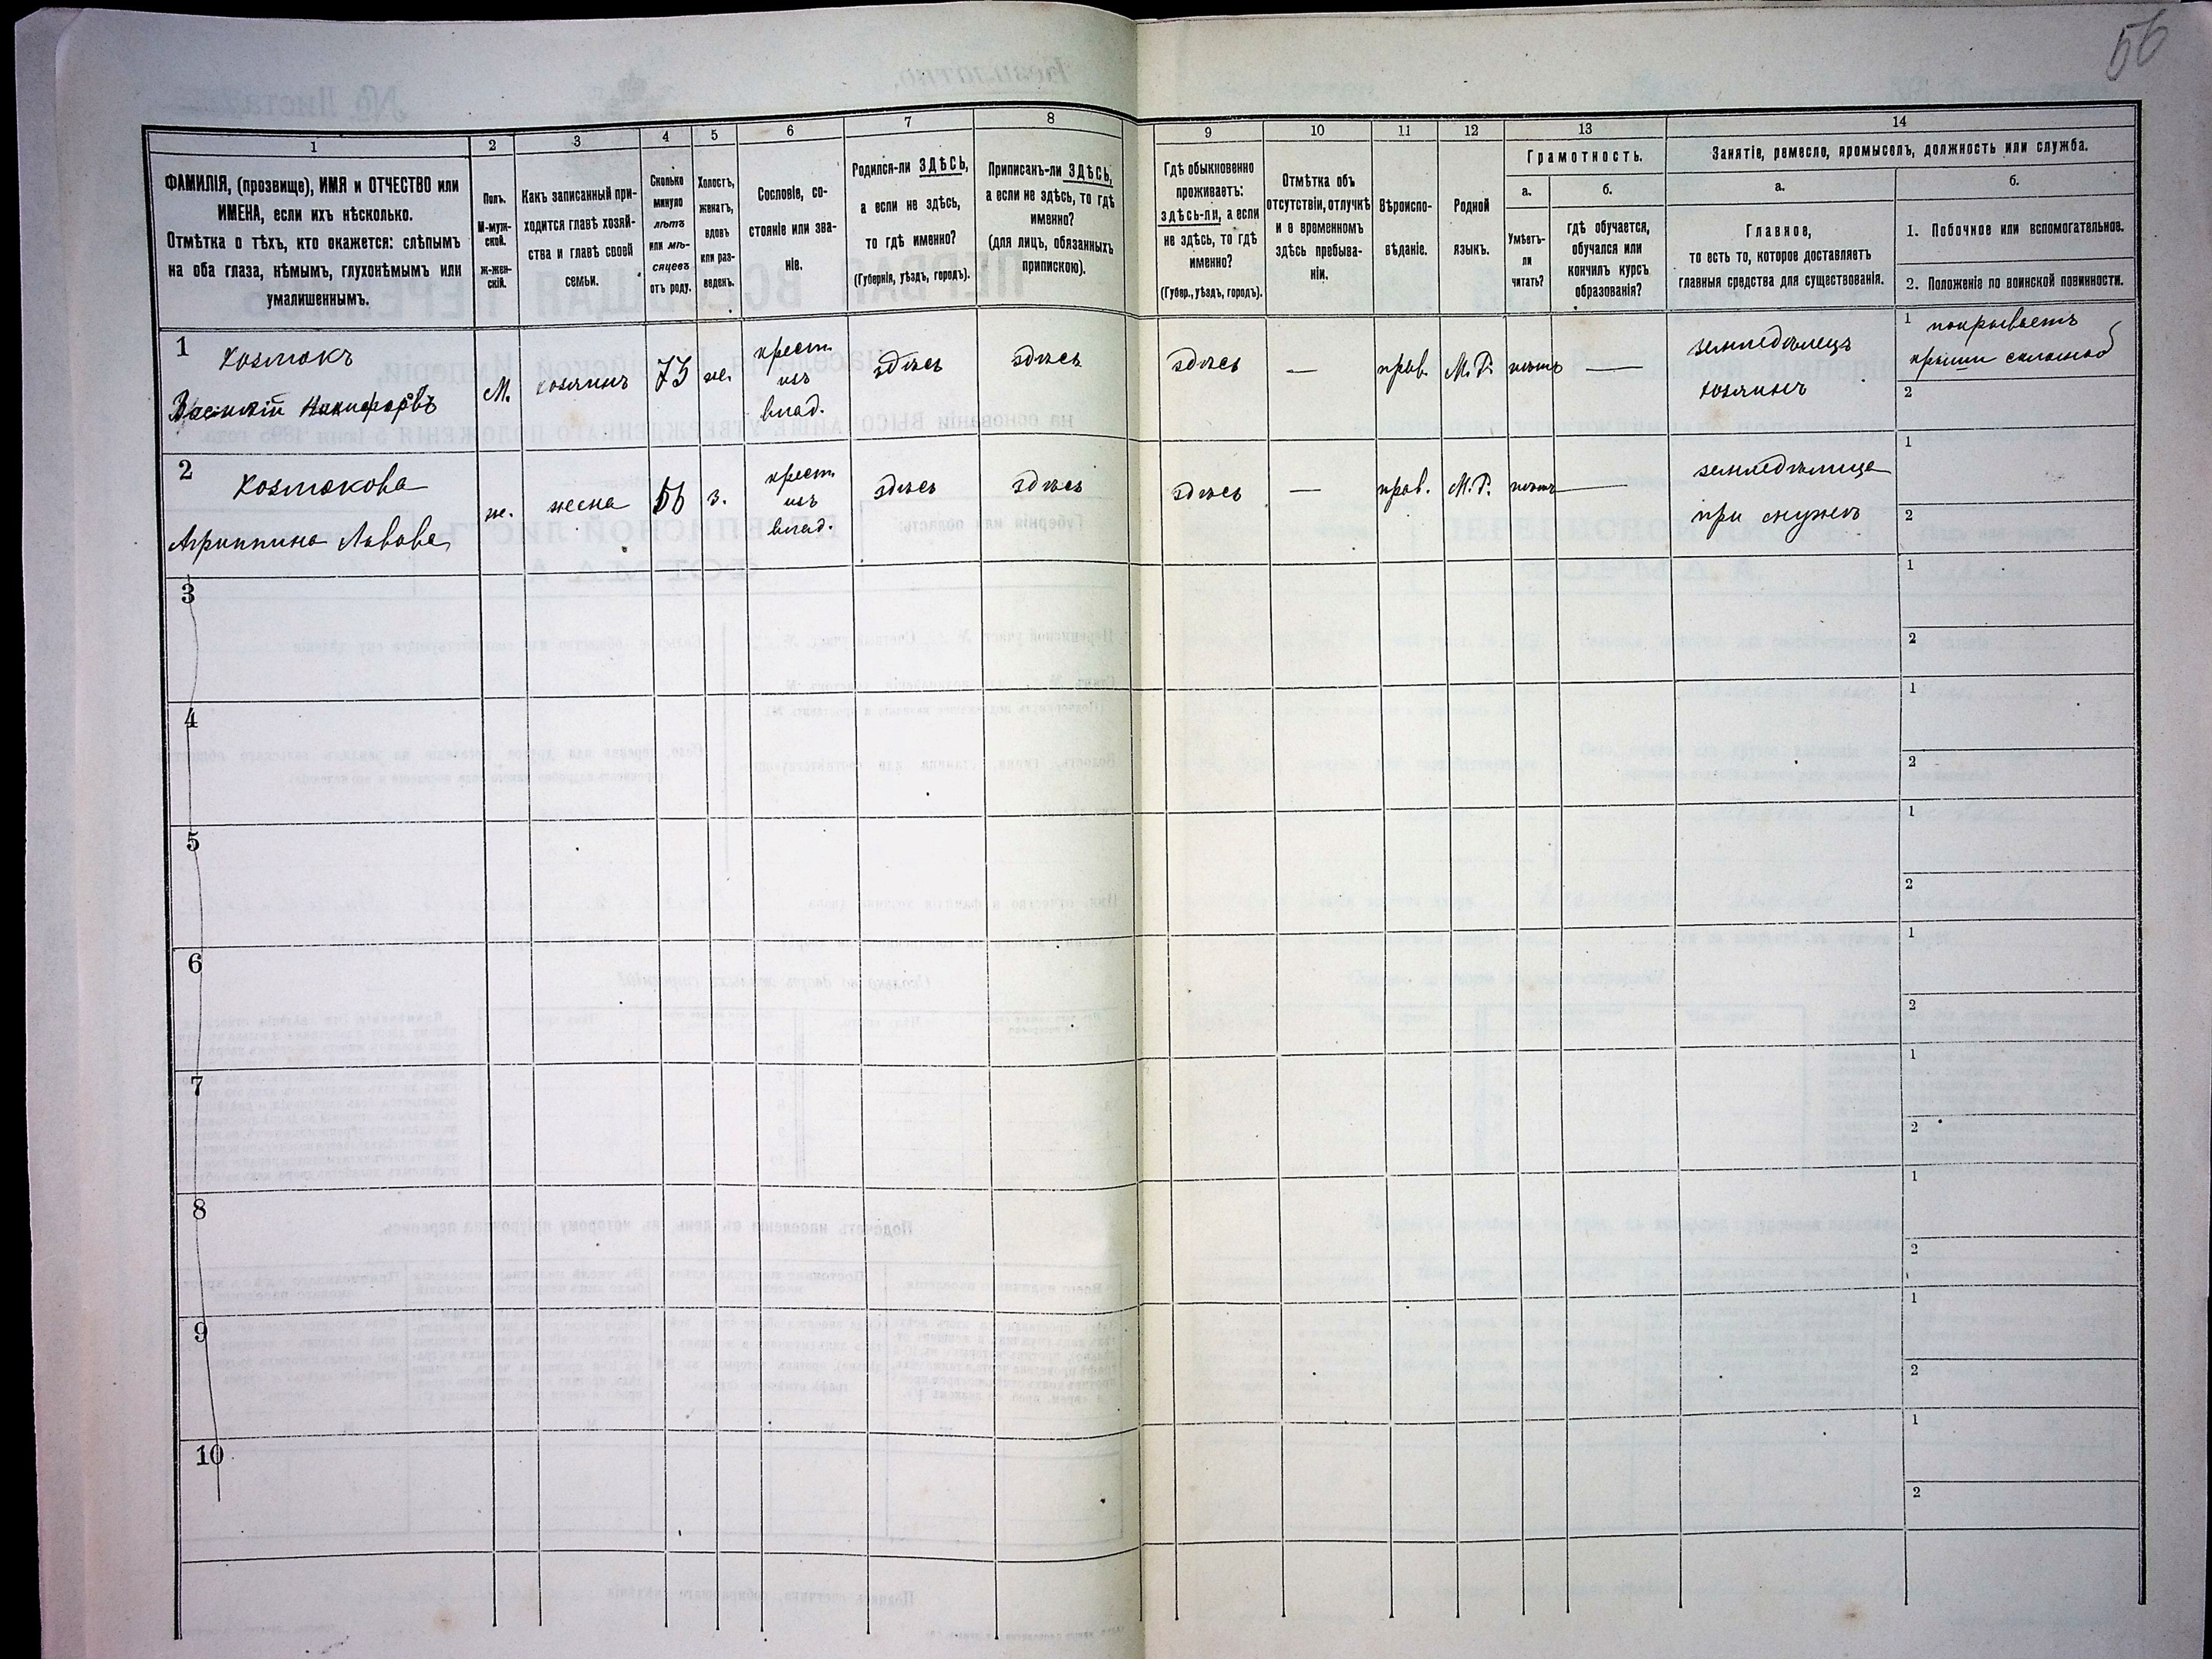 56
1
2
3
4
5
6
7
8
9
10
11
12
13
14
ФАМИЛІЯ, (прозвище), ИМЯ и ОТЧЕСТВО или
ИМЕНА, если ихъ нѣсколько.
Отмѣтка о тѣхъ, кто окажется: слѣпымъ
на оба глаза, нѣмымъ, глухонѣмымъ или
умалишеннымъ.
Полъ.
М-муж-
ской.
Ж-жен-
скій.
Какъ записанный при-
ходится главѣ хозяй-
ства и главѣ своей
семьи.
Сколько
минуло
лѣтъ
или мѣ-
сяцевъ
отъ роду.
Холостъ,
женатъ,
вдовъ
или раз-
веденъ.
Сословіе, со-
стояніе или зва-
ніе.
Родился-ли ЗДѢСЬ,
а если не здѣсь,
то гдѣ именно?
(Губернія, уѣздъ, городъ).
Приписанъ-ли ЗДѢСЬ,
а если не здѣсь, то гдѣ
именно?
(для лицъ, обязанныхъ
припискою).
Гдѣ обыкновенно
проживаетъ:
здѣсь-ли, а если
не здѣсь, то гдѣ
именно?
(Губер., уѣздъ, городъ).
Отмѣтка объ
отсутствіи, отлучкѣ
и о временномъ
здѣсь пребыва-
ніи.
Вѣроиспо-
вѣданіе.
Родной
языкъ.
Грамотность.
а.
Умѣетъ-
ли
читать?
б.
гдѣ обучается,
обучался или
кончилъ курсъ
образованія?
Занятіе, ремесло, промыселъ, должность или служба.
а.
Главное,
то есть то, которое доставляетъ
главныя средства для существованія.
б.
1. Побочное или вспомогательное.
2. Положеніе по воинской повинности.
1
Козлюкъ
Василій Никифоровъ
М.
хозяинъ
73
же.
крест.
изъ
влад.
здѣсь
здѣсь
здѣсь
—
прав.
М. Р.
нѣтъ
—
земледѣлецъ
хозяинъ
1 покрываетъ
крыши соломой
2
2
Козлюкова
Агриппина Львова
же.
жена
56
з.
крест.
изъ
влад.
здѣсь
здѣсь
здѣсь
—
прав.
М. Р.
нѣтъ
—
земледѣлица
при мужѣ
1
2
3
1
2
4
1
2
5
1
2
6
1
2
7
1
2
8
1
2
9
1
2
10
1
2